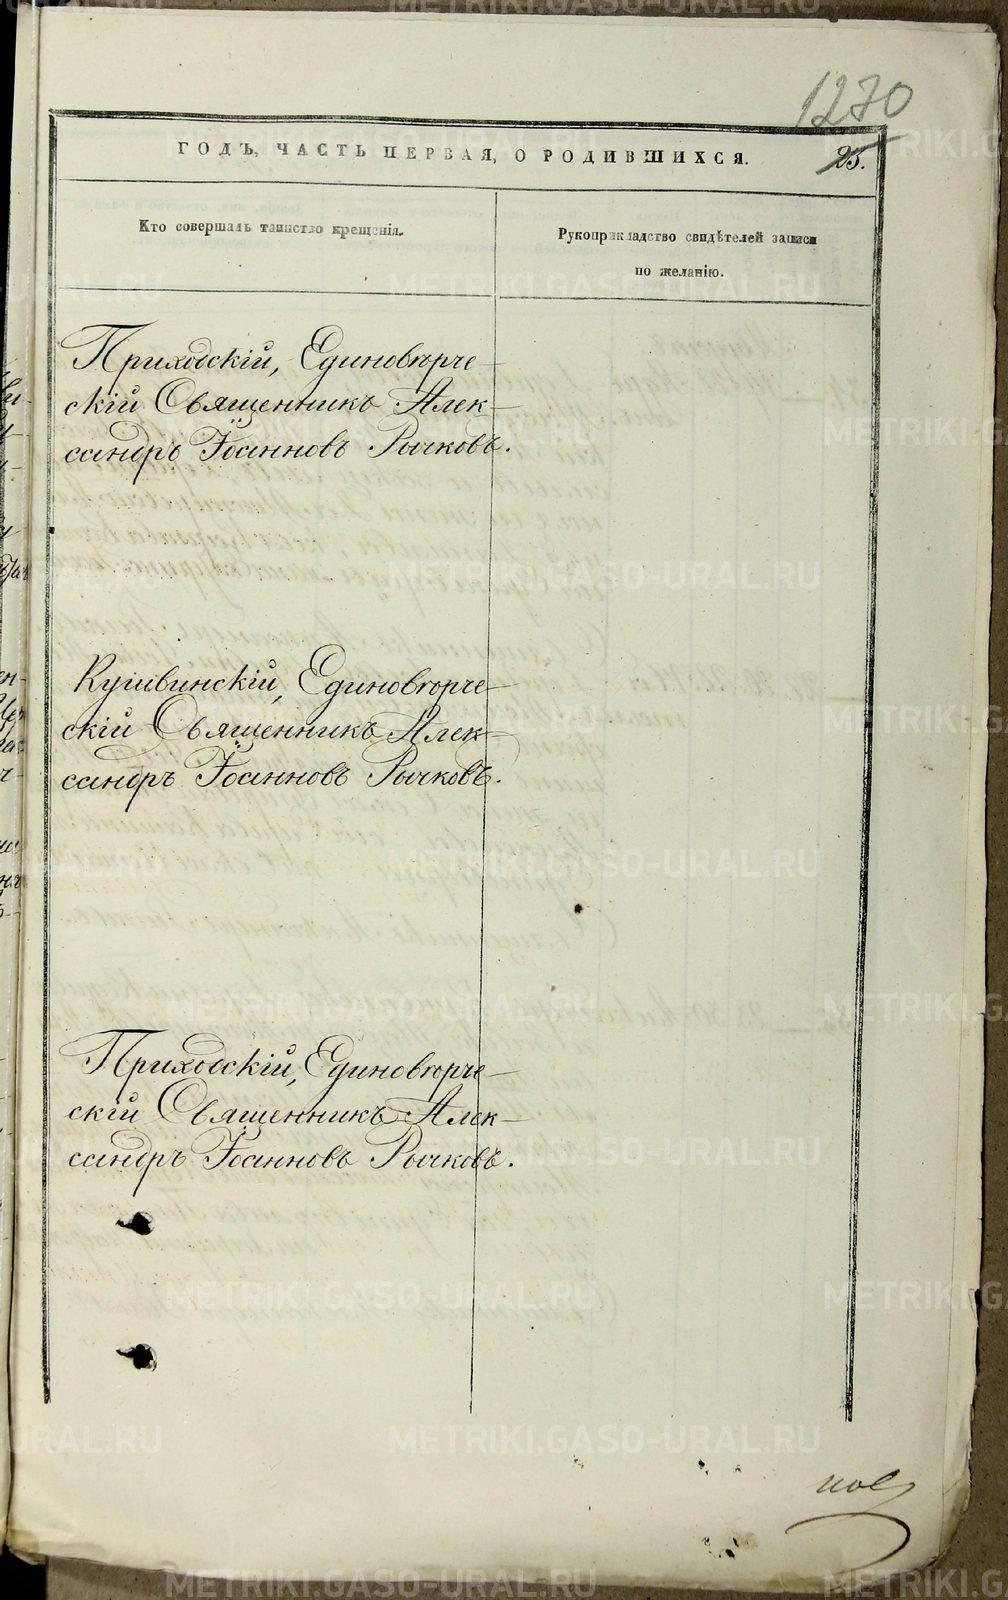 1270
ГОДЪ, ЧАСТЬ ПЕРВАЯ, О РОДИВШИХСЯ.
25.
Кто совершалъ таинство крещенія.
Рукоприкладство свидѣтелей записи
по желанію.
Приходскій, Единовѣрче-
скій Священникъ Алек-
сандръ Іоанновъ Рычковъ.
Кушвинскій, Единовѣрче-
скій Священникъ Алек-
сандръ Іоанновъ Рычковъ.
Приходскій, Единовѣрче-
скій Священникъ Алек-
сандръ Іоанновъ Рычковъ.
METRIKI.GASO-URAL.RU